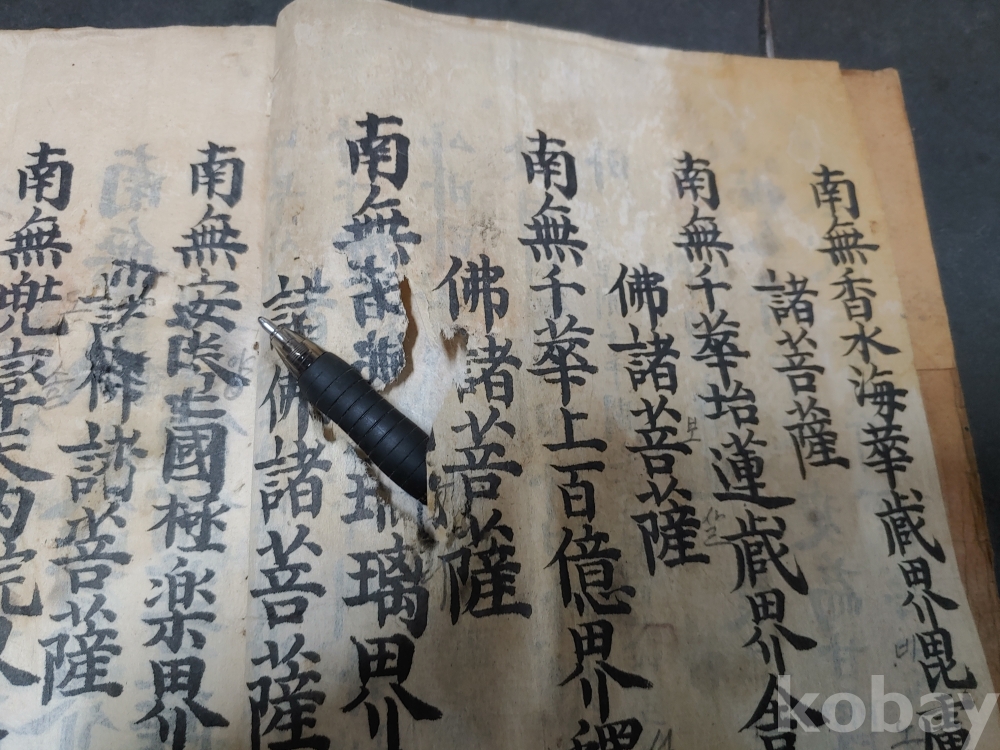 南無香水海華蔵界毘盧
諸菩薩
南無千華坮蓮蔵界舍
佛諸菩薩
南無千華上百億界釋
佛諸菩薩
南無璃界
諸佛諸菩薩
南無安國極楽界
諸菩薩
南無兜天內院界
보
비
kobay